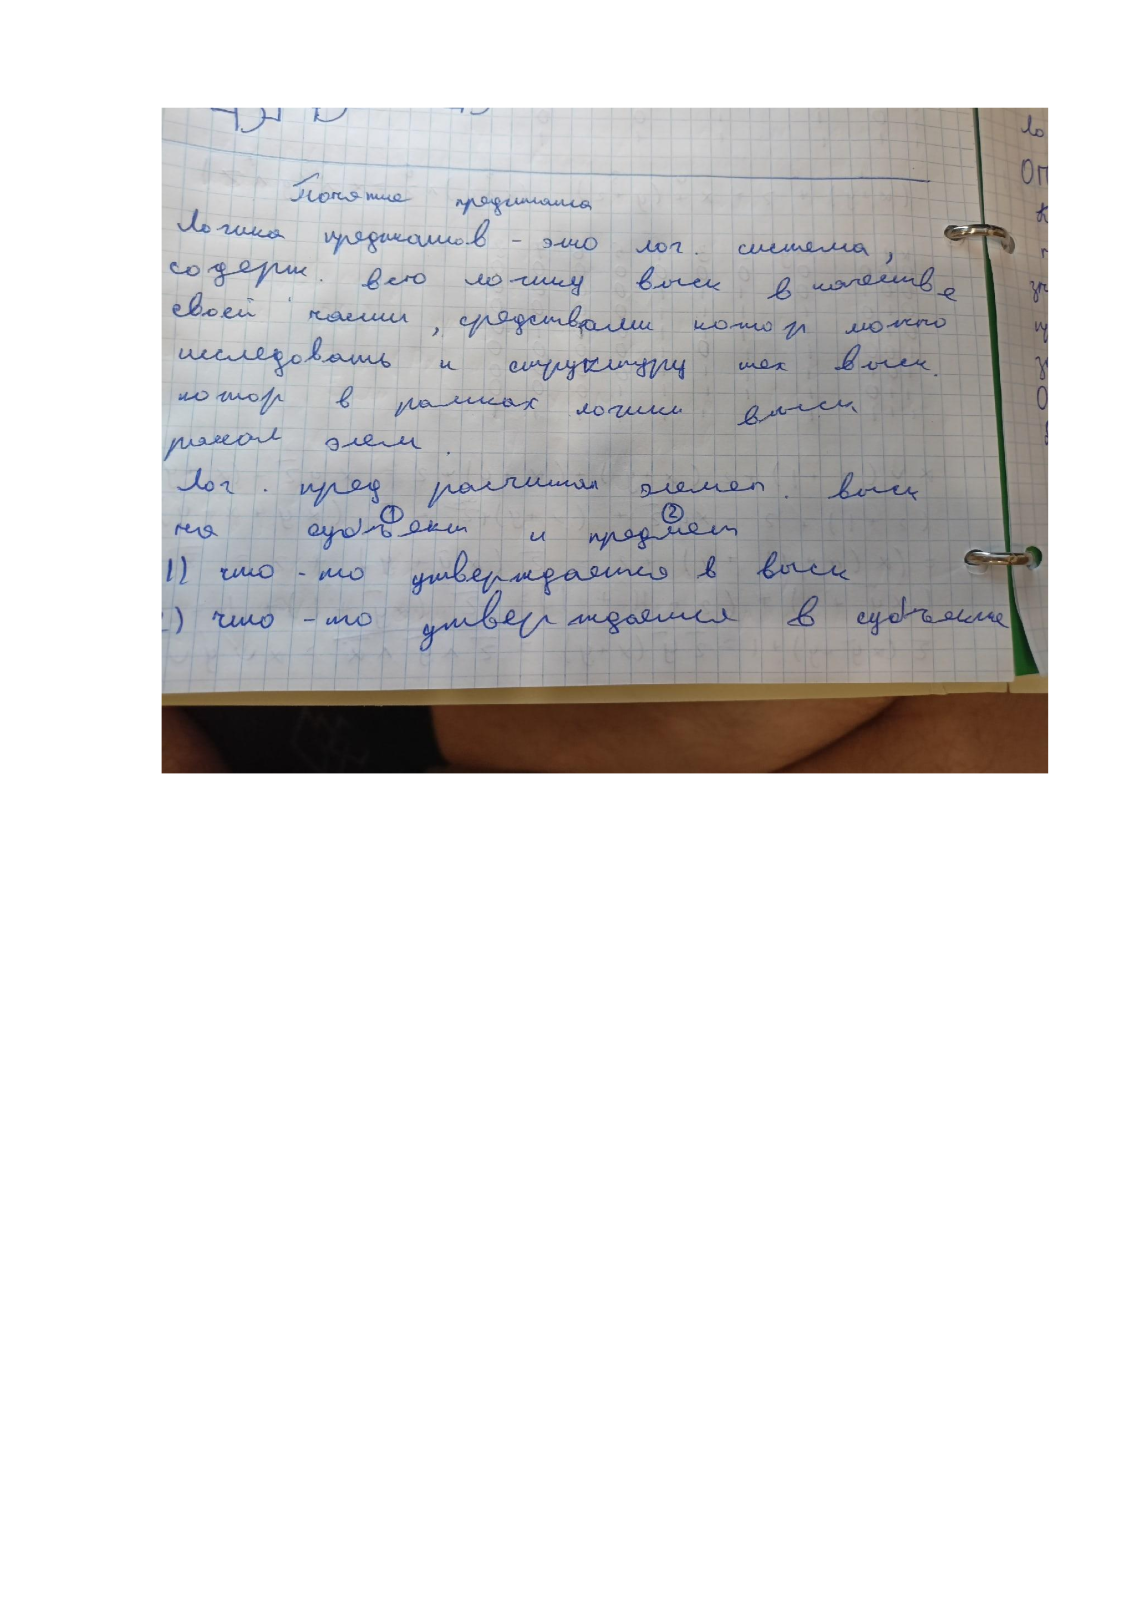 Понятие предиката
Логика предикатов - это лог. система,
содерж. всю логику выск в качестве
своей части, средствами котор можно
исследовать и структуру тех выск.
котор в рамках логики выск
элем.
Лог. пред расчитал элемен. выск
на субъект и предмет
① ②
1) что-то утверждается в выск
2) что-то утверждается в субъекте